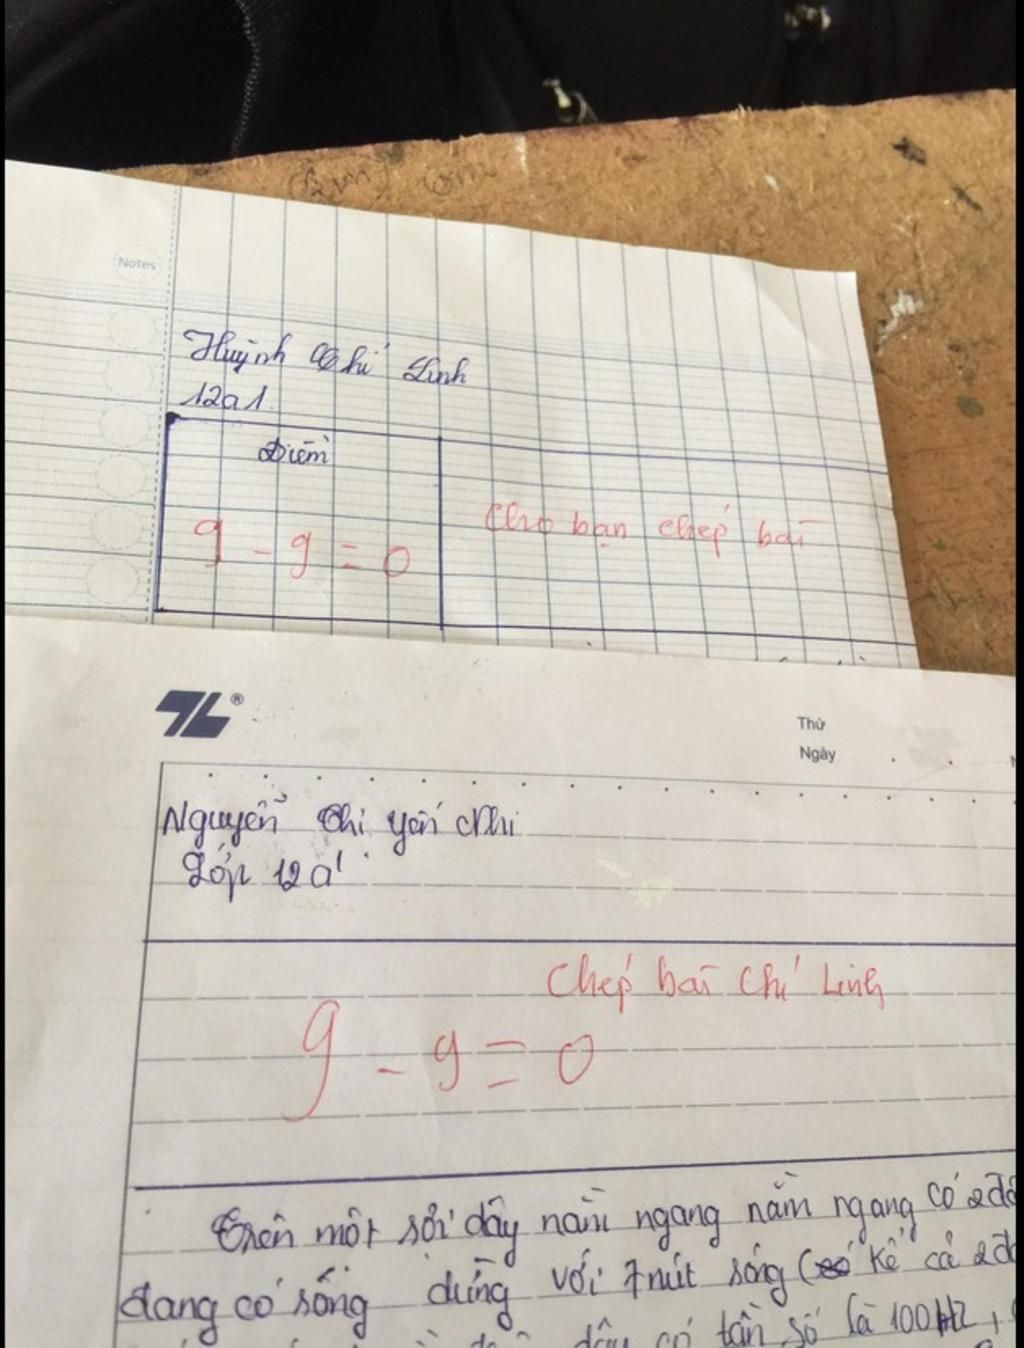 Notes
Huỳnh Chí Linh
12a1
Điểm
9 - 9 = 0
Cho bạn chép bài
TL®
Thứ
Ngày
Nguyễn Thị Yến Nhi
Lớp 12a1
Chép bài Chí Linh
9 - 9 = 0
Trên một sợi dây nằm ngang nằm ngang có 2 đ
đang có sống dừng với 7 nút sóng ( kể cả 2 đ
dây có tần số là 100Hz,